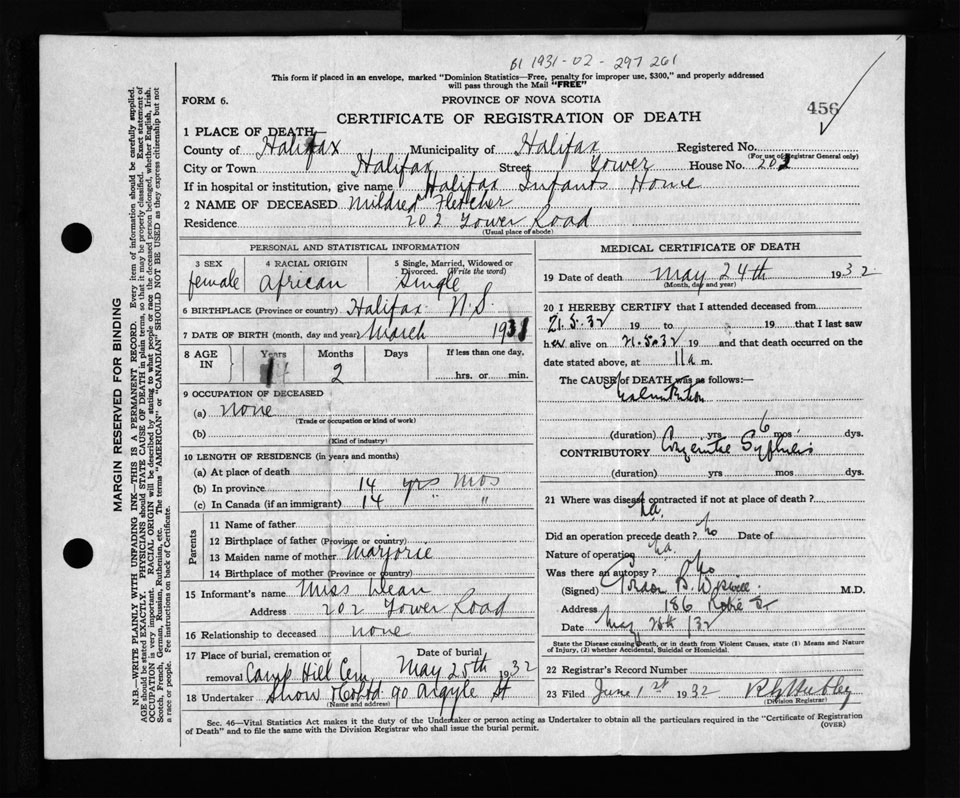 B1 1931-02-297261
This form if placed in an envelope, marked "Dominion Statistics—Free, penalty for improper use, $300," and properly addressed
will pass through the Mail "FREE"
FORM 6.
PROVINCE OF NOVA SCOTIA
456
CERTIFICATE OF REGISTRATION OF DEATH
1 PLACE OF DEATH
County of Halifax Municipality of Halifax Registered No.
(For use of Registrar General only)
City or Town Halifax Street Tower House No. 202
If in hospital or institution, give name Halifax Infants Home
2 NAME OF DECEASED Mildred Fletcher
Residence 202 Tower Road
(Usual place of abode)
PERSONAL AND STATISTICAL INFORMATION
3 SEX 4 RACIAL ORIGIN 5 Single, Married, Widowed or
Divorced. (Write the word)
female African Single
6 BIRTHPLACE (Province or country) Halifax N.S.
7 DATE OF BIRTH (month, day and year) March 1931
8 AGE IN Years Months Days If less than one day,
1 2 hrs. or min.
9 OCCUPATION OF DECEASED
(a) none
(Trade or occupation or kind of work)
(b)
(Kind of industry)
10 LENGTH OF RESIDENCE (in years and months)
(a) At place of death
(b) In province 14 yrs mos
(c) In Canada (if an immigrant) 14 " "
Parents
11 Name of father
12 Birthplace of father (Province or country)
13 Maiden name of mother Marjorie
14 Birthplace of mother (Province or country)
15 Informant's name Miss Dean
Address 202 Tower Road
16 Relationship to deceased none
17 Place of burial, cremation or Date of burial
removal Camp Hill Cem May 25th 1932
18 Undertaker Snow & Co Ltd 90 Argyle St
(Name and address)
MEDICAL CERTIFICATE OF DEATH
19 Date of death May 24th 1932
(Month, day and year)
20 I HEREBY CERTIFY that I attended deceased from
21.5.32 19 to 19 that I last saw
her alive on 21.5.32 19 and that death occurred on the
date stated above, at 11 a m.
The CAUSE of DEATH was as follows:—
Malnutrition
(duration) yrs 6 mos. dys.
CONTRIBUTORY Congenital Syphilis
(duration) yrs mos dys.
21 Where was disease contracted if not at place of death?
na.
Did an operation precede death? no Date of
Nature of operation na.
Was there an autopsy? No
(Signed) Gordon B. Wiswell M.D.
Address 186 Robie St
Date May 28th /32
State the Disease causing Death, or in death from Violent Causes, state (1) Means and Nature
of Injury, (2) whether Accidental, Suicidal or Homicidal.
22 Registrar's Record Number
23 Filed June 1st 1932
(Division Registrar)
Sec. 46—Vital Statistics Act makes it the duty of the Undertaker or person acting as Undertaker to obtain all the particulars required in the "Certificate of Registration
of Death" and to file the same with the Division Registrar who shall issue the burial permit. (OVER)
MARGIN RESERVED FOR BINDING
N.B.—WRITE PLAINLY WITH UNFADING INK—THIS IS A PERMANENT RECORD. Every item of information should be carefully supplied.
AGE should be stated EXACTLY. PHYSICIANS should STATE CAUSE OF DEATH in plain terms, so that it may be properly classified. Exact statement of
OCCUPATION is very important. RACIAL ORIGIN will be described by stating to what people or race the deceased person belonged, whether English, Irish,
Scotch, French, German, Russian, Ruthenian, etc. The terms "AMERICAN" or "CANADIAN" SHOULD NOT BE USED as they express citizenship but not
a race or people. Fee instructions on back of Certificate.